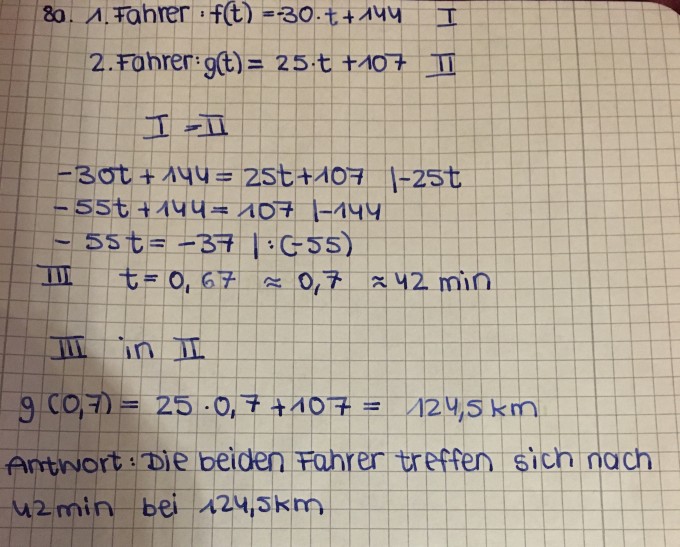 8a. 1. Fahrer: f(t) =-30·t+144 I
2. Fahrer: g(t) = 25·t +107 II
I = II
-30t + 144 = 25t + 107 |-25t
-55t + 144 = 107 |-144
- 55t = -37 | : (-55)
III t = 0,67 ≈ 0,7 ≈ 42 min
III in II
g (0,7) = 25 · 0,7 + 107 = 124,5 km
Antwort: Die beiden Fahrer treffen sich nach
42min bei 124,5km